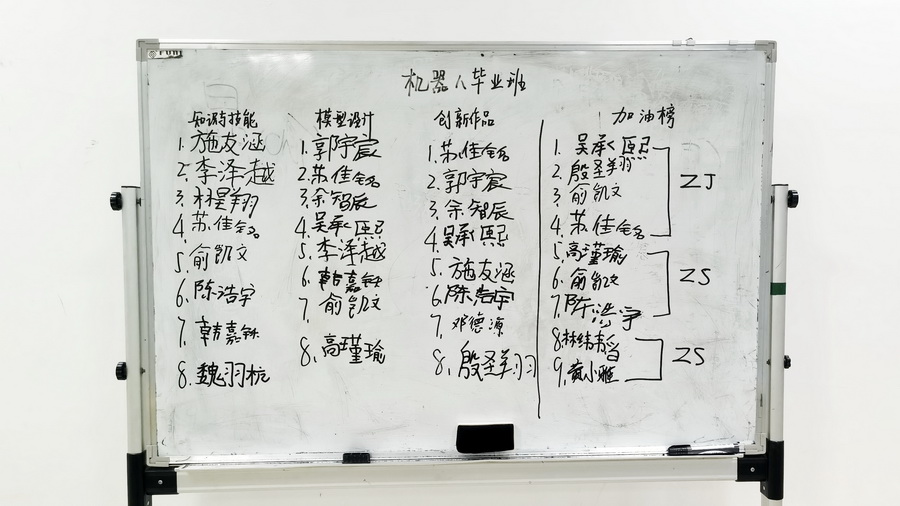 机器人毕业班
知识与技能
1.施友涵
2.李泽越
3.林星翔
4.苏佳铭
5.俞凯文
6.陈浩宇
7.韩嘉铄
8.魏羽杭
模型设计
1.郭宇宸
2.苏佳铭
3.余智辰
4.吴承熙
5.李泽越
6.韩嘉铄
7.俞凯文
8.高瑾瑜
创新作品
1.苏佳铭
2.郭宇宸
3.余智辰
4.吴承熙
5.施友涵
6.陈浩宇
7.邓德源
8.殷圣翔羽
加油榜
1.吴承熙
2.殷圣翔羽
3.俞凯文
4.苏佳铭
ZJ
5.高瑾瑜
6.俞凯文
7.陈浩宇
ZS
8.林纬韬
9.黄小雅
ZS